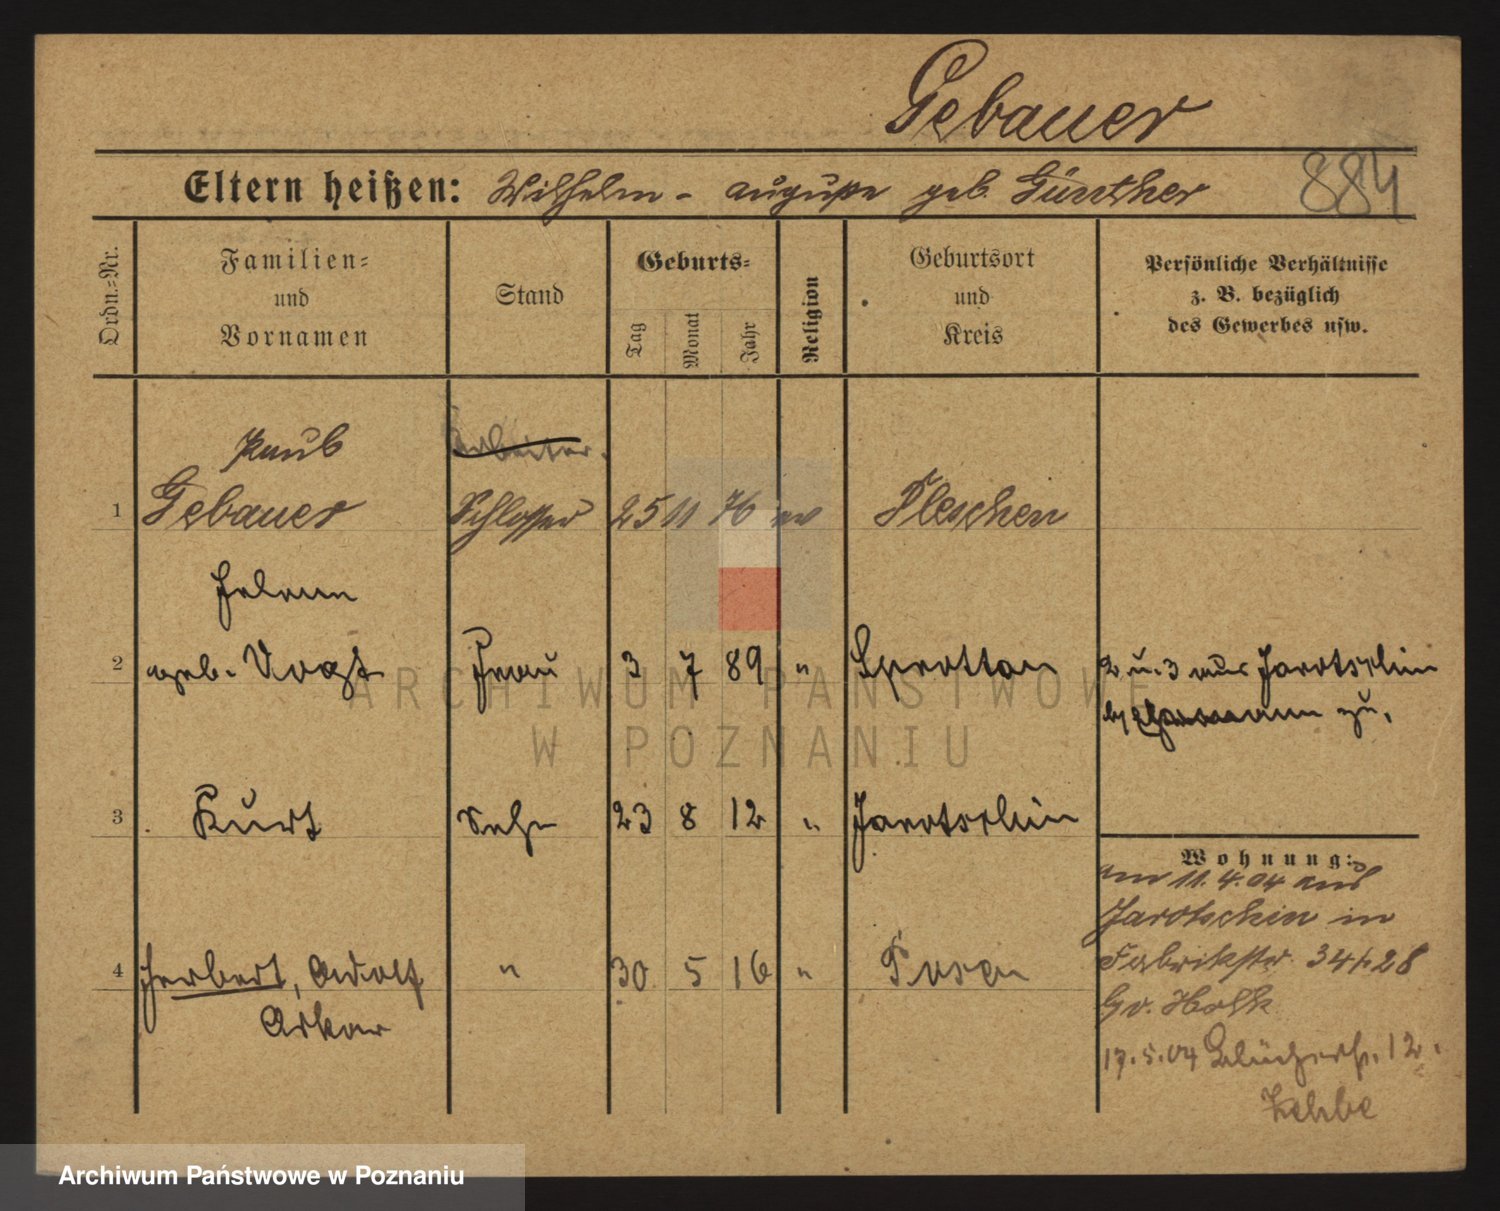 Gebauer
Eltern heißen: Wilhelm - Auguste geb. Günther 884
Ordn.-Nr.
Familien-
und
Vornamen
Stand
Geburts-
Tag
Monat
Jahr
Religion
Geburtsort
und
Kreis
Persönliche Verhältnisse
z. B. bezüglich
des Gewerbes usw.
Arbeiter.
1 Gebauer Schlosser 25 11 76 ev Pleschen
2 geb. Vogt Frau 3 7 89 " Sprottau 2 u. 3 aus Jarotschin
zu.
3 Kurt Sohn 23 8 12 " Jarotschin
Wohnung:
am 11.4.04 aus
Jarotschin in
Fabrikstr. 34 28
4 Herbert, Adolf " 30 5 16 " Posen
Oskar
17.5.04 Blücherstr. 12.
ARCHIWUM PAŃSTWOWE
W POZNANIU
Archiwum Państwowe w Poznaniu